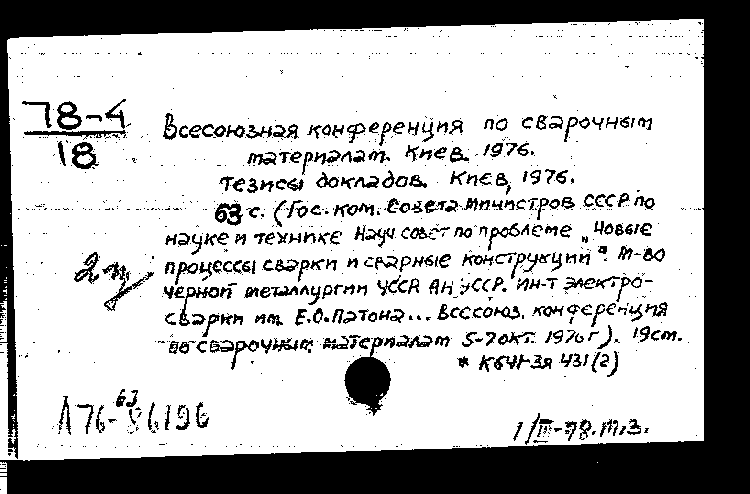 78-4
18
Всесоюзная конференция по сварочным
материалам. Киев. 1976.
Тезисы докладов. Киев, 1976.
63 с. (Гос. ком. Совета Министров СССР по
науке и технике Науч совет по проблеме "Новые
процессы сварки и сварные конструкции". М-во
черной металлургии УССР АН УССР. Ин-т электро-
сварки им. Е.О. Патона... Всесоюз. конференция
по сварочным материалам 5-7 окт. 1976 г). 19 см.
* К641-3я 431(2)
63
Л76-86196
1/III-78. М.З.